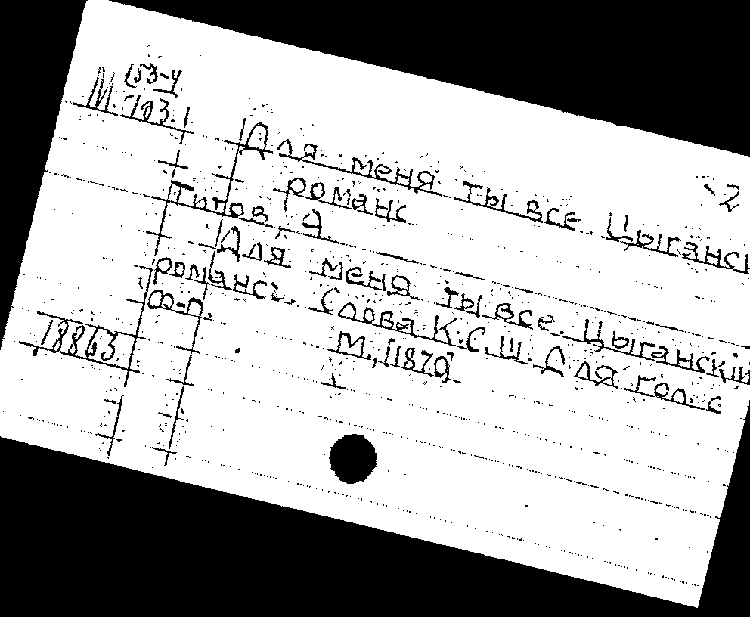 М 153-4
703.
2
Для меня ты все. Цыганскі
романс
Титов, А.
Для меня ты все. Цыганскій
романс. Слова К.С.Ш. Для гол. с
ф-п.
М., [1870]
18863